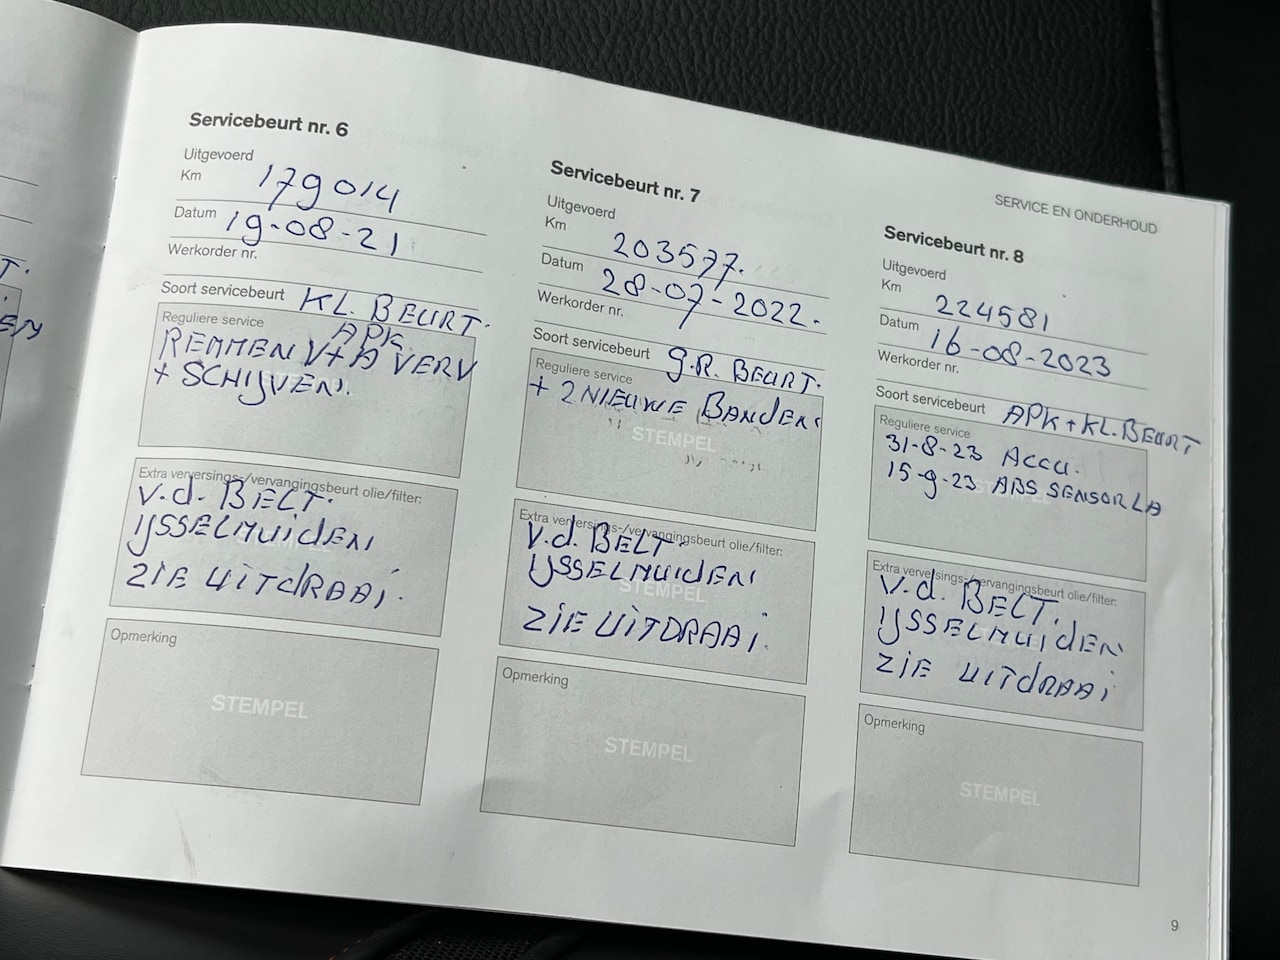 T.
EN
Servicebeurt nr. 6
Uitgevoerd
Km 179014
Datum 19-08-21
Werkorder nr.
Soort servicebeurt KL. BEURT.
APK
Reguliere service
REMMEN V+A VERV
+ SCHIJVEN.
Extra verversings-/vervangingsbeurt olie/filter:
v.d. BELT.
IJSSELMUIDEN
ZIE UITDRAAI.
Opmerking
STEMPEL
Servicebeurt nr. 7
Uitgevoerd
Km 203577.
Datum 28-07-2022.
Werkorder nr.
Soort servicebeurt g.R. BEURT.
Reguliere service
+ 2 NIEUWE BANDEN
STEMPEL
Extra verversings-/vervangingsbeurt olie/filter:
v.d. BELT.
IJSSELMUIDEN
STEMPEL
ZIE UITDRAAI.
Opmerking
STEMPEL
SERVICE EN ONDERHOUD
Servicebeurt nr. 8
Uitgevoerd
Km 224581
Datum 16-08-2023
Werkorder nr.
Soort servicebeurt APK + KL. BEURT
Reguliere service
31-8-23 Accu.
15-9-23 ABS SENSOR LA
Extra verversings-/vervangingsbeurt olie/filter:
v.d. BELT.
IJSSELMUIDEN
ZIE UITDRAAI
Opmerking
STEMPEL
9